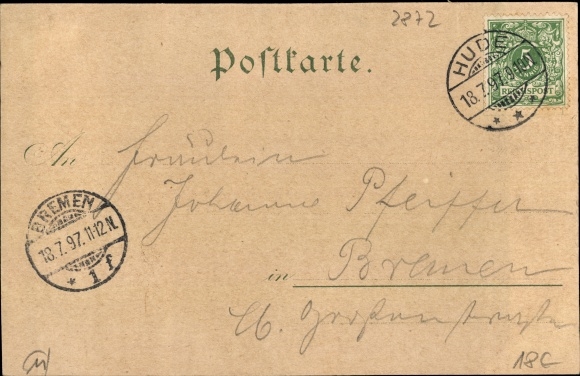 2872
Postkarte.
HUDE
18.7.97. 9-10N.
5
REICHSPOST
An Fräulein
Johanne Pfeiffer
BREMEN
18.7.97. 11-12N.
* 1 f
in Bremen
18C